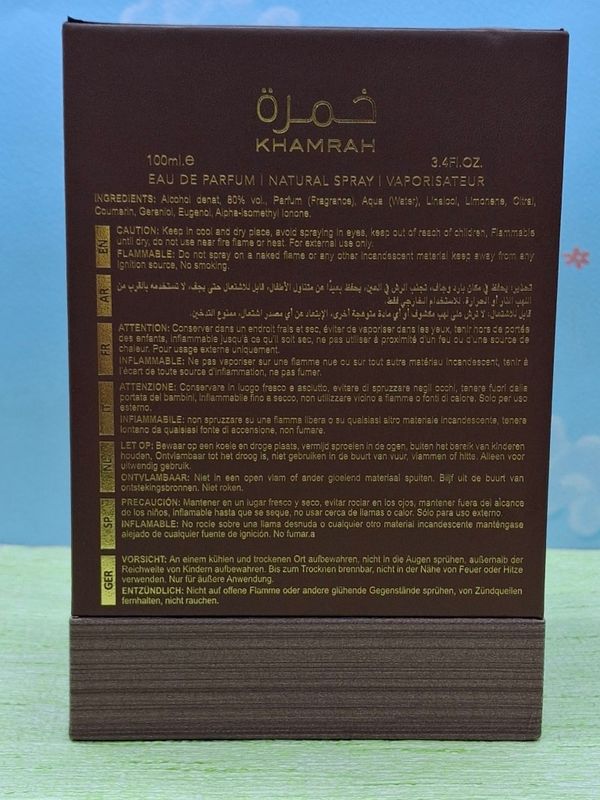 خمرة
KHAMRAH
100ml.e 3.4Fl.OZ.
EAU DE PARFUM | NATURAL SPRAY | VAPORISATEUR
INGREDIENTS: Alcohol denat, 80% vol., Parfum (Fragrance), Aqua (Water), Linalool, Limonene, Citral,
Coumarin, Geraniol, Eugenol, Alpha-Isomethyl Ionone.
EN
CAUTION: Keep in cool and dry place, avoid spraying in eyes, keep out of reach of children, Flammable
until dry, do not use near fire flame or heat. For external use only.
FLAMMABLE: Do not spray on a naked flame or any other incandescent material keep away from any
ignition source, No smoking.
AR
تحذير: يحفظ في مكان بارد وجاف، تجنب الرش في العين، يحفظ بعيدًا عن متناول الأطفال، قابل للاشتعال حتى يجف، لا تستخدمه بالقرب من
اللهب النار أو الحرارة. للاستخدام الخارجي فقط.
قابل للاشتعال: لا ترش على لهب مكشوف أو أي مادة متوهجة أخرى، الإبتعاد عن أي مصدر اشتعال، ممنوع التدخين.
FR
ATTENTION: Conserver dans un endroit frais et sec, éviter de vaporiser dans les yeux, tenir hors de portés
des enfants, inflammable jusqu'à ce qu'il soit sec, ne pas utiliser à proximité d'un feu ou d'une source de
chaleur. Pour usage externe uniquement.
INFLAMMABLE: Ne pas vaporiser sur une flamme nue ou sur tout autre matériau incandescent, tenir à
l'écart de toute source d'inflammation, ne pas fumer.
IT
ATTENZIONE: Conservare in luogo fresco e asciutto, evitare di spruzzare negli occhi, tenere fuori dalla
portata dei bambini, Infiammabile fino a secco, non utilizzare vicino a fiamme o fonti di calore. Solo per uso
esterno.
INFIAMMABILE: non spruzzare su una fiamma libera o su qualsiasi altro materiale incandescente, tenere
lontano da qualsiasi fonte di accensione, non fumare.
NE
LET OP: Bewaar op een koele en droge plaats, vermijd sproeien in de ogen, buiten het bereik van kinderen
houden, Ontvlambaar tot het droog is, niet gebruiken in de buurt van vuur, vlammen of hitte. Alleen voor
uitwendig gebruik.
ONTVLAMBAAR: Niet in een open vlam of ander gloeiend materiaal spuiten. Blijf uit de buurt van
ontstekingsbronnen. Niet roken.
SP
PRECAUCIÓN: Mantener en un lugar fresco y seco, evitar rociar en los ojos, mantener fuera del alcance
de los niños, Inflamable hasta que se seque, no usar cerca de llamas o calor. Sólo para uso externo.
INFLAMABLE: No rocíe sobre una llama desnuda o cualquier otro material incandescente manténgase
alejado de cualquier fuente de ignición. No fumar.a
GER
VORSICHT: An einem kühlen und trockenen Ort aufbewahren, nicht in die Augen sprühen, außerhalb der
Reichweite von Kindern aufbewahren. Bis zum Trocknen brennbar, nicht in der Nähe von Feuer oder Hitze
verwenden. Nur für äußere Anwendung.
ENTZÜNDLICH: Nicht auf offene Flamme oder andere glühende Gegenstände sprühen, von Zündquellen
fernhalten, nicht rauchen.